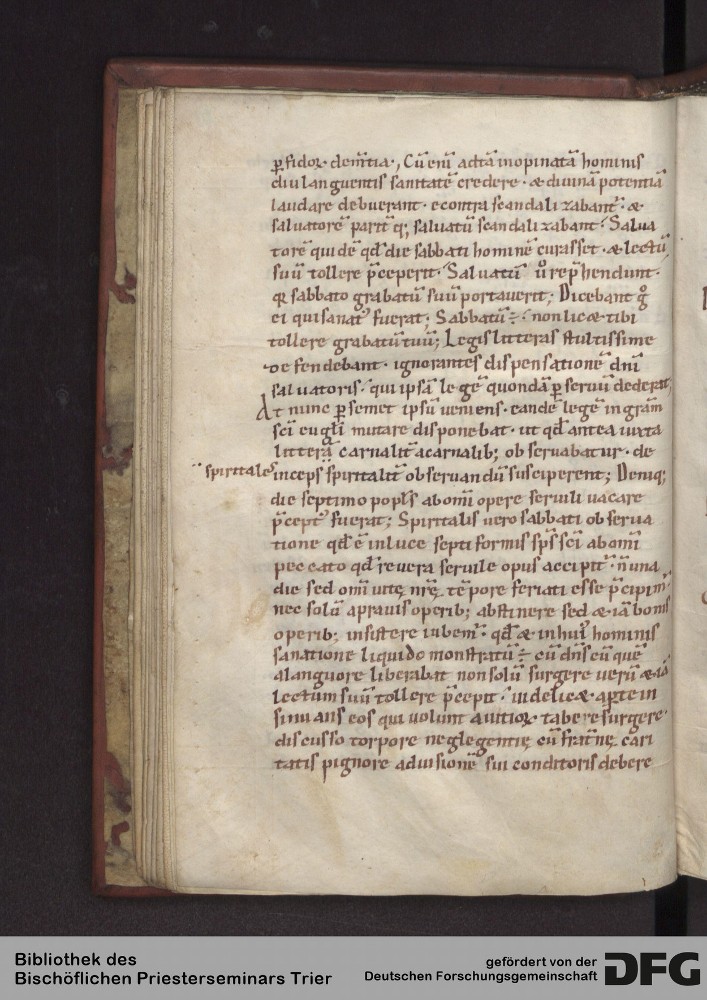 ꝑfidoꝝ · dem̄tia ·, Cū eni̅ ad tā inopinatā hominis
diu languentis sanitatē credere · & diuinā potentiā
laudare debuerant · econtra scandalizabant᷒ · &
saluatorē parit̄ q; saluatū scandalizabant᷒ · Salua
torē quidē qd̄ die sabbati hominē curasset · & lectū
suū tollere p̄ceperit · Saluatū ů rep̄hendunt ·
qꝛ sabbato grabatū suū portauerit; Dicebant gͦ
ei qui sanat᷒ fuerat; Sabbatū ÷ · non lic& tibi
tollere grabatū tuū; Legis litteras stultissime
defendebant · ignorantes dispensationē dni̅
saluatoris · qui ipsā legē quondā ꝑ seruū dederat;
At nunc ꝑ semet ipsū ueniens · eandē legē in grām
sci̅ eugl̅i mutare disponebat · ut qd̄ antea iuxta
litterā carnalit̄ a carnalib; obseruabatur · de
spiritales inceps spiritalit̄ obseruandū susciperent; Deniq;
die septimo popl̅s ab omi̅ opere seruili uacare
p̄cept᷒ fuerat; Spiritalis uero sabbati obserua
tione qd̄ ē in luce septiformis sp̅s sci̅ ab omi̅
peccato qd̄ reuera seruile opus accipit᷒ · n̄ una
die sed omi̅ uitę nr̅ę tēpore feriati esse p̄cipim᷒ ·
nec solū a prauis operib; abstinere sed & iā bonis
operib; insistere iubem᷒ · qd̄ & in hui᷒ hominis
sanatione liquido monstratū ÷ cū dn̅s eū quē
a languore liberabat non solū surgere uerū & iā
lectum suū tollere p̄cepit · uidelic& · aꝑte in
sinuans eos qui uolunt a uitioꝝ · tabe resurgere ·
discusso torpore neglegentię cū frat̄nę cari
tatis pignore ad uisionē sui conditoris debere
Bibliothek des
Bischöflichen Priesterseminars Trier
gefördert von der
Deutschen Forschungsgemeinschaft
DFG